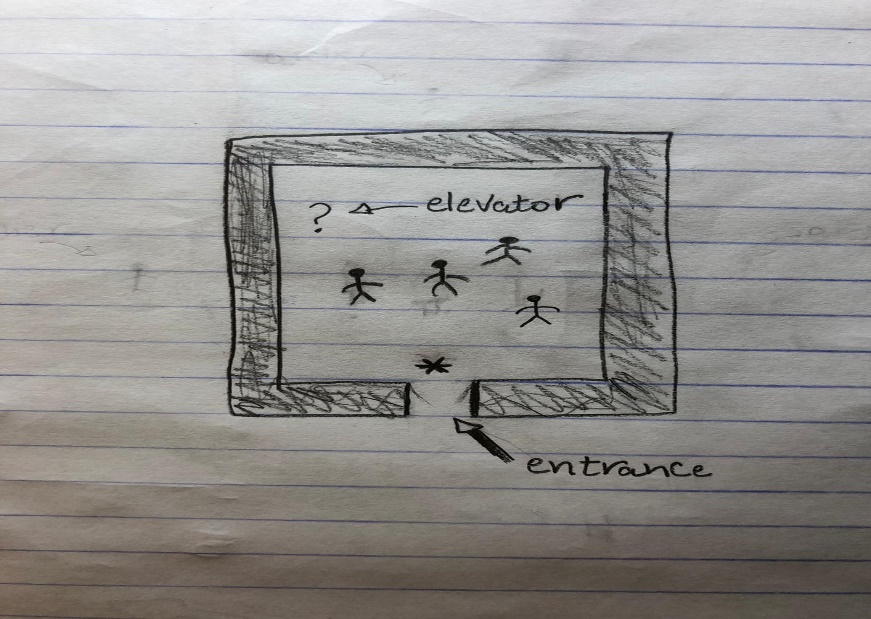 ? elevator
*
entrance